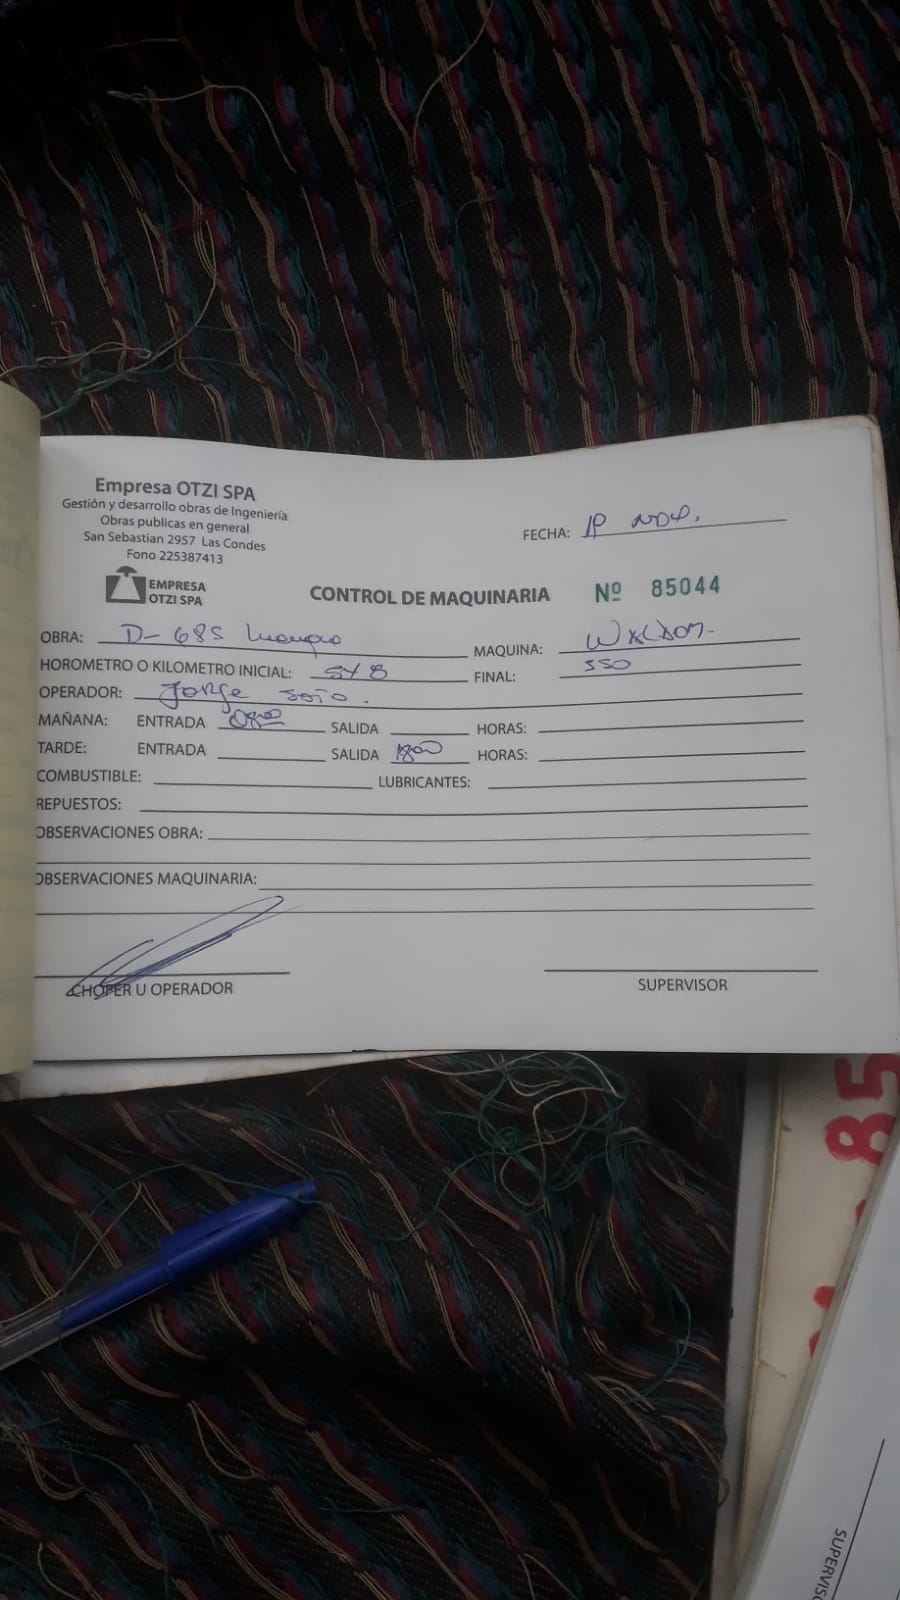 Empresa OTZI SPA
Gestión y desarrollo obras de Ingeniería
Obras publicas en general
San Sebastian 2957 Las Condes
Fono 225387413
FECHA:
EMPRESA
OTZI SPA
CONTROL DE MAQUINARIA Nº 85044
OBRA: D-685 MAQUINA:
HOROMETRO O KILOMETRO INICIAL: 548 FINAL: 550
OPERADOR: Jorge Soto.
MAÑANA: ENTRADA 0800 SALIDA HORAS:
TARDE: ENTRADA SALIDA 1800 HORAS:
COMBUSTIBLE: LUBRICANTES:
REPUESTOS:
OBSERVACIONES OBRA:
OBSERVACIONES MAQUINARIA:
CHOFER U OPERADOR SUPERVISOR
85
SUPERVISO